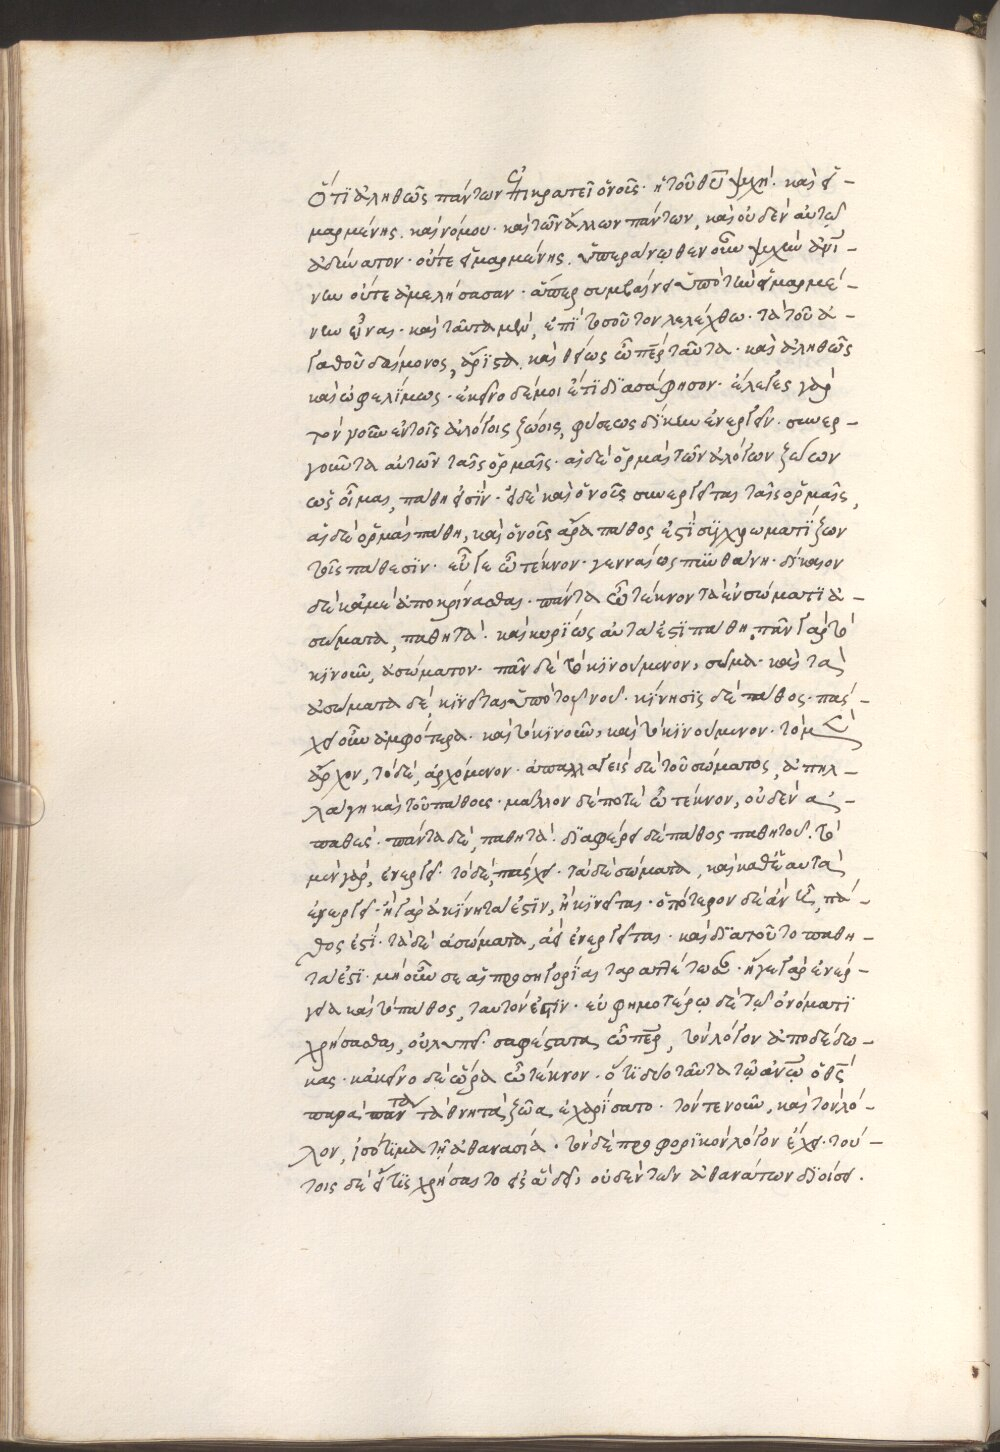 Ὅτϊ ἀληθῶς πάντων ἐπικρατεῖ ὁ νοῦς· ἡ τοῦ θῦ ψυχή· καὶ εἱ-
μαρμένης. καὶ νόμου· καὶ τῶν ἄλλων πάντων, καὶ οὐδὲν αὐτῷ
ἀδύνατον· οὔτε εἱμαρμένης. ὑπεράνωθεν οὖν ψυχὴν ἀνΐ-
νην οὔτε ἀμελήσασαν· ἅπερ συμβαίνει ὑπὸ τὴν εἱμαρμέ-
νην εἶναι· καὶ ταῦτα μὲν, ἐπῒ τοσοῦτον λελέχθω· τὰ τοῦ ἀ-
γαθοῦ δαίμονος, ἄρϊστα, καὶ θείως ὦ περ ταῦτα· καὶ ἀληθῶς
καὶ ὠφελΐμως· ἐκεῖνο δέ μοι ἔτϊ δϊασάφησον· ἔλεγες γὰρ
τὸν νοῦν ἐν τοῖς ἀλόγοις ζώοις, φύσεως δίκην ἐνεργεῖν· συνερ-
γοῦντα αὐτῶν ταῖς ὁρμαῖς· αἱ δὲ ὁρμαὶ τῶν ἀλόγων ζώων
ὡς οἶμαι, πάθη εἰσΐν· εἰ δὲ καὶ ὁ νοῦς συνεργεῖ ταῖς ὁρμαῖς,
αἱ δὲ ὁρμαὶ πάθη, καὶ ὁ νοῦς ἄρα πάθος ἐστῒ συγχρωματΐζων
τοῖς πάθεσϊν· εὖγε ὦ τέκνον· γενναίως πυνθάνη· δίκαιον
δὲ κἀμὲ ἀποκρίνασθαι· πάντα ὦ τέκνον τὰ ἐν σώματϊ ἀ-
σώματα, παθητά· καὶ κυρΐως αὐτά ἐστϊ πάθη, πᾶν γὰρ τὸ
κϊνοῦν, ἀσώματον· πᾶν δὲ τὸ κϊνούμενον, σῶμα· καὶ τὰ
ἀσώματα δὲ, κϊνεῖται ὑπὸ τοῦ νοῦ· κΐνησϊς δὲ πάθος· πάσ-
χει οὖν ἀμφότερα· καὶ τὸ κϊνοῦν, καὶ τὸ κϊνούμενον· τὸ μὲν
ἄρχον, τὸ δὲ, ἀρχόμενον· ἀπαλλαγεὶς δὲ τοῦ σώματος, ἀπηλ-
λάγη καὶ τοῦ πάθους· μᾶλλον δέ ποτε ὦ τέκνον, οὐδὲν ἀ-
παθές· πάντα δὲ, παθητά· δϊαφέρει δὲ πάθος παθητοῦ. τὸ
μὲν γὰρ, ἐνεργεῖ· τὸ δὲ, πάσχει· τὰ δὲ σώματα, καὶ καθ' ἑαυτὰ
ἐνεργεῖ· ἢ γὰρ ἀκΐνητά ἐστϊν, ἢ κϊνεῖται· ὁπότερον δὲ ἂν ᾖ, πά-
θος ἐστΐ· τὰ δὲ ἀσώματα, ἀεὶ ἐνεργεῖται· καὶ δϊὰ τοῦτο παθη-
τά ἐστϊ· μὴ οὖν σε αἱ προσηγορΐαι ταραττέτωσαν· ἥ γε γὰρ ἐνέρ-
γεια καὶ τὸ πάθος, ταυτόν ἐστϊν· εὐφημοτέρῳ δὲ τῷ ὀνόματϊ
χρήσασθαι, οὐ λυπεῖ· σαφέστατα ὦ περ, τὸν λόγον ἀποδέδω-
κας· κἀκεῖνο δὲ ὅρα ὦ τέκνον· ὅτϊ δύο ταῦτα τῷ ἀνῳ ὁ θς
παρὰ πάντα τὰ θνητὰ ζῷα ἐχαρΐσατο· τόν τε νοῦν, καὶ τὸν λό-
γον, ἰσότϊμα τῇ ἀθανασίᾳ· τὸν δὲ προφορϊκὸν λόγον ἔχει· τού-
τοις δὲ εἴ τϊς χρήσαιτο εἰς ἃ δεῖ, οὐδὲν τῶν ἀθανάτων δϊοίσει.